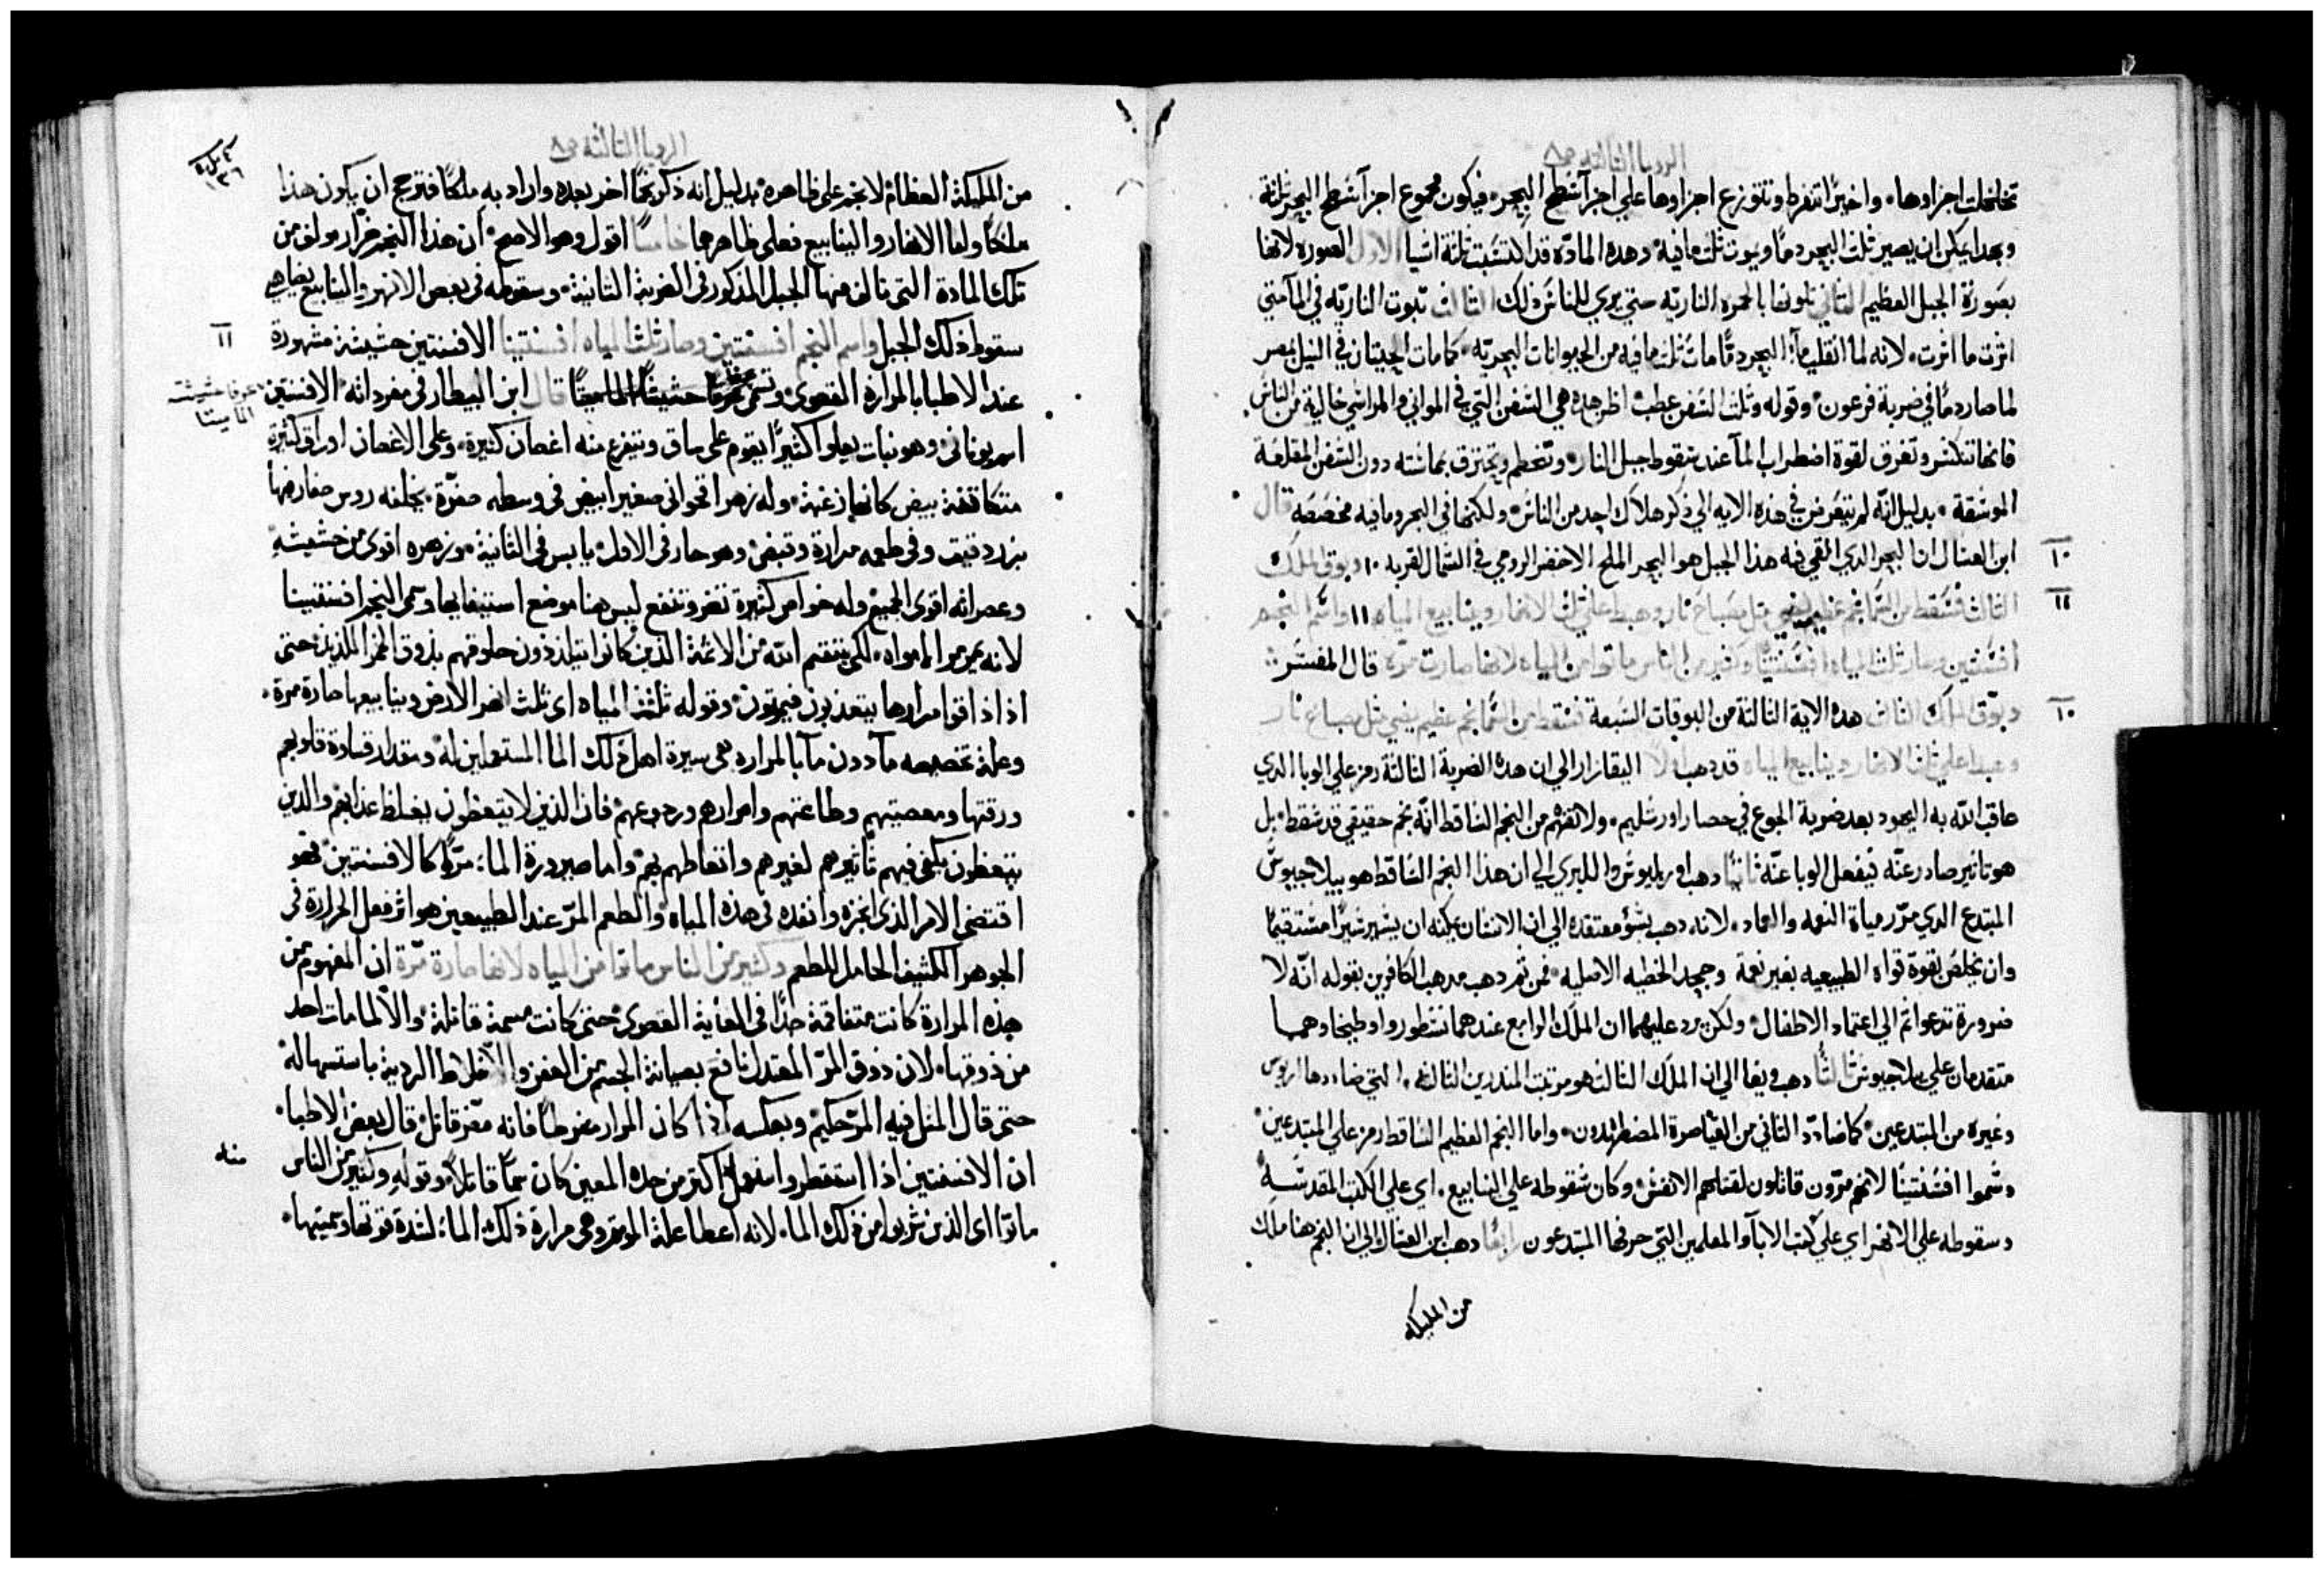 الرويا الثالثه ص٨
تخلخلت اجزاوها، واخيرًا تنفرط وتتوزع اجزاوها علي اجزآ سَطح البحر، فيكون مجموع اجزآ سَطح البحر ثلثة
وبهدا يمكن ان يصير ثلث البحر دمًا ويموت ثلث مافيه، وهده المادّه قد اكتسَبت ثلثة اشيا الاول الصوره لانها
بصَورة الجبل العظيم الثاني تلونها بالحمره الناريّه حتي يري للناسَ ذلك الثالث ثبوت الناريّه في المآ حتي
اثرت ما اثرت، لانه لما انقلب مآ البحر دمًّا مات ثلث مافيه من الحيوانات البحريّه، كما مات الحيتان في النيل بمصر
لما صار دمًا في ضربة فرعون، وقوله وثلث السَفن عطب، اظن هده هي السَفن التي في المواني والمراسَي خالية من الناسَ
فانها تنكسَر وتغرق لقوة اضطراب المآ عند سَقوط جبل النار، وتتحطم وتحترق بمماسَته دون السَفن المقلعة
الموسَقة، بدليل انّه لم يتعَرض في هذه الايه الي ذكر هلاك احد من الناسَ، ولكنها في البحر ومافيه مخصَصَه قال
ابن العسَال ان البحر الدي القي فيه هذا الجبل هو البحر الملح الاخضر الرومي في الشمال القريه ١٠ وبوق الملك
١٠
الثالث فسَقط من السَمآ نجم عظيم يضي مثل مصَباح نار وهبط علي ثلث الانهار وينابيع المياه ١١ واسَم النجم
١١
افسَنتين وصار ثلث المياه افسَنتينًا وكثير من الناس ماتوا من المياه لانها صارت مرّه قال المفسَر:
وبوّق الملاك الثالث هده الاية الثالثة من البوقات السَبعة فسَقط من السَمآ نجم عظيم يضي مثل مصباح نار
١٠
وهبط علي ثلث الانهار وينابيع المياه قد دهب اولًا اليقازار الي ان هده الضربة الثالثة رمز علي الوبا الدي
عاقب اللّه به اليهود بعد ضربة الجوع في حصار اورشليم، ولا تفهم من النجم السَاقط انّه نجم حقيقي قد سَقط، بل
هو تاثير صادر عنّه فيفعل الوبا عنّه ثانيًا دهب اوريليوسَ والليري الي ان هذا النجم السَاقط هو بيلاجيوسَ
المبتدع الدي مرّر مياة النعمه والعماد، لانه دهب بسَؤ معتقده الي ان الانسَان يمكنه ان يسَير سَيرًا مسَتقيمًا
وان يخلصَ بقوة قواه الطبيعيه بغير نعمة وجحد الخطيه الاصليه، فمن ثم دهب مدهب الكافرين بقوله انّه لا
ضرورة تدعوا ثم الي اعتماد الاطفال، ولكن يرد عليهما ان الملَك الرابع عندهما نسَطور واوطيخا وهما
متقدمان علي بيلاجيوسَ ثالثًا دهب ويغا الي ان الملَك الثالث هو مرتبت المندرين الثالثه، التي ضاددها اريوس
وغيره من المبتدعين، كما ضادّد الثاني من القياصرة المضطهدون، واما النجم العظيم السَاقط رمز علي المبتدعين
وسَموا افسَنتينًا لانهم مرّون قاتلون لقتلهم الانفسَ، وكان سَقوطه علي الينابيع، اي علي الكتب المقدسَة
وسقوطه علي الانهر اي علي كتب الابآ والمعلمين التي حرفها المبتدعون رابعًا دهب ابن العسَال الي ان النجم هنا ملك
من المليكه
الرويا الثالثة ص٨
١٣٦
من المليكة العظام لا نجم على ظاهره، بدليل انه ذكر نجمًا اخر بعده واراد به ملكًا فترجح ان يكون هذا
ملكًا واما الانهار والينابيع فعلى ظاهرها خامسًا اقول وهو الاصح، ان هذا النجم جرّار مولف من
تلك المادة التى تالف منها الجبل المذكور فى الضربة الثانية، وسقوطه فى بعض الانهر والينابيع يضاهى
سقوط ذلك الجبل واسم النجم افسنتين وصار ثلث المياه افسنتينا الافسنتين حشيشة مشهورة
١١
عند الاطبا بالمرارة القصوى وتسمى عرفًا قال ابن البيطار فى مفرداته الافسنتين
عرفا حشيشة
اسم يونانى، وهو نبات يعلوا كثيرًا يقوم على ساق وتتفرع منه اغصان كثيرة، وعلى الاغصان اوراق كثيرة
متكاثفة بيض كانها زغبة، وله زهر اقحوانى صغير ابيض فى وسطه صفرة، تخلفه روس صغار فيها
بزر دقيق وفى طعمه مرارة وقبض، وهو حار فى الاول، يابس فى الثانية، وزهره اقوى من حشيشه
وعصراته اقوى الجميع، وله خواص كثيرة تضر وتنفع ليس هنا موضع استيفايها وسمى النجم افسنتينا
لانه يمرمر المامواه، لكى ينتقم اللّه من الائمة الذين كانوا يتلذذون حلوقهم بذوق الخمر اللذيذ، حتى
اذا ذاقوا مرارها يتعذبون فيموتون، وقوله ثلث المياه اى ثلث انهر الارض وينابيعها صارة مرة،
وعلة تخصيصه مآ دون مآ بالمراره هى سيرة اهل ذلك الما المستعملين له، ومقدار قساوة قلوبهم
ورقتها ومعصيتهم وطاعتهم وامرارهم ورجوعهم، فان الذين لا يتعظون بغلظ عذابهم والذين
يتعظون يكفى فيهم تاثيرهم لغيرهم واتعاظهم بهم، واما صيرورة الما مرًّا كالافسنتين، فهو
اقتضى الامر الذى انجزه وانفده فى هذه المياه، والطعم المرّ عند الطبيعين هو اثر فعل الحرارة فى
الجوهر الكثيف الحامل للطعم وكثير من الناس ماتوا من المياه لانها صارة مرّة ان المفهوم من
هذه المرارة كانت متفاقمة جدًّا فى الغاية القصوى، حتى كانت مسمة قاتلة، والا لما مات احد
من ذوقها، لان ذوق المرّ المعتدل نافع بصيانة الجسم من العفن والاخلاط الردية باستسهاله
حتى قال المثل فيه المرّ حكيم، وبعكسه اذا كان المرار مفرطًا فانه مضر قاتل، قال بعض الاطبا،
ان الافسنتين اذا استقطر واستعمل اكثر من حده المعين كان سمًّا قاتلًا، وقوله وكثير من الناس
منه
ماتوا اى الذين شربوا من ذلك الما، لانه اعطا علة الموت وهى مرارة ذلك الما، لشدة قوتها وسميتها،